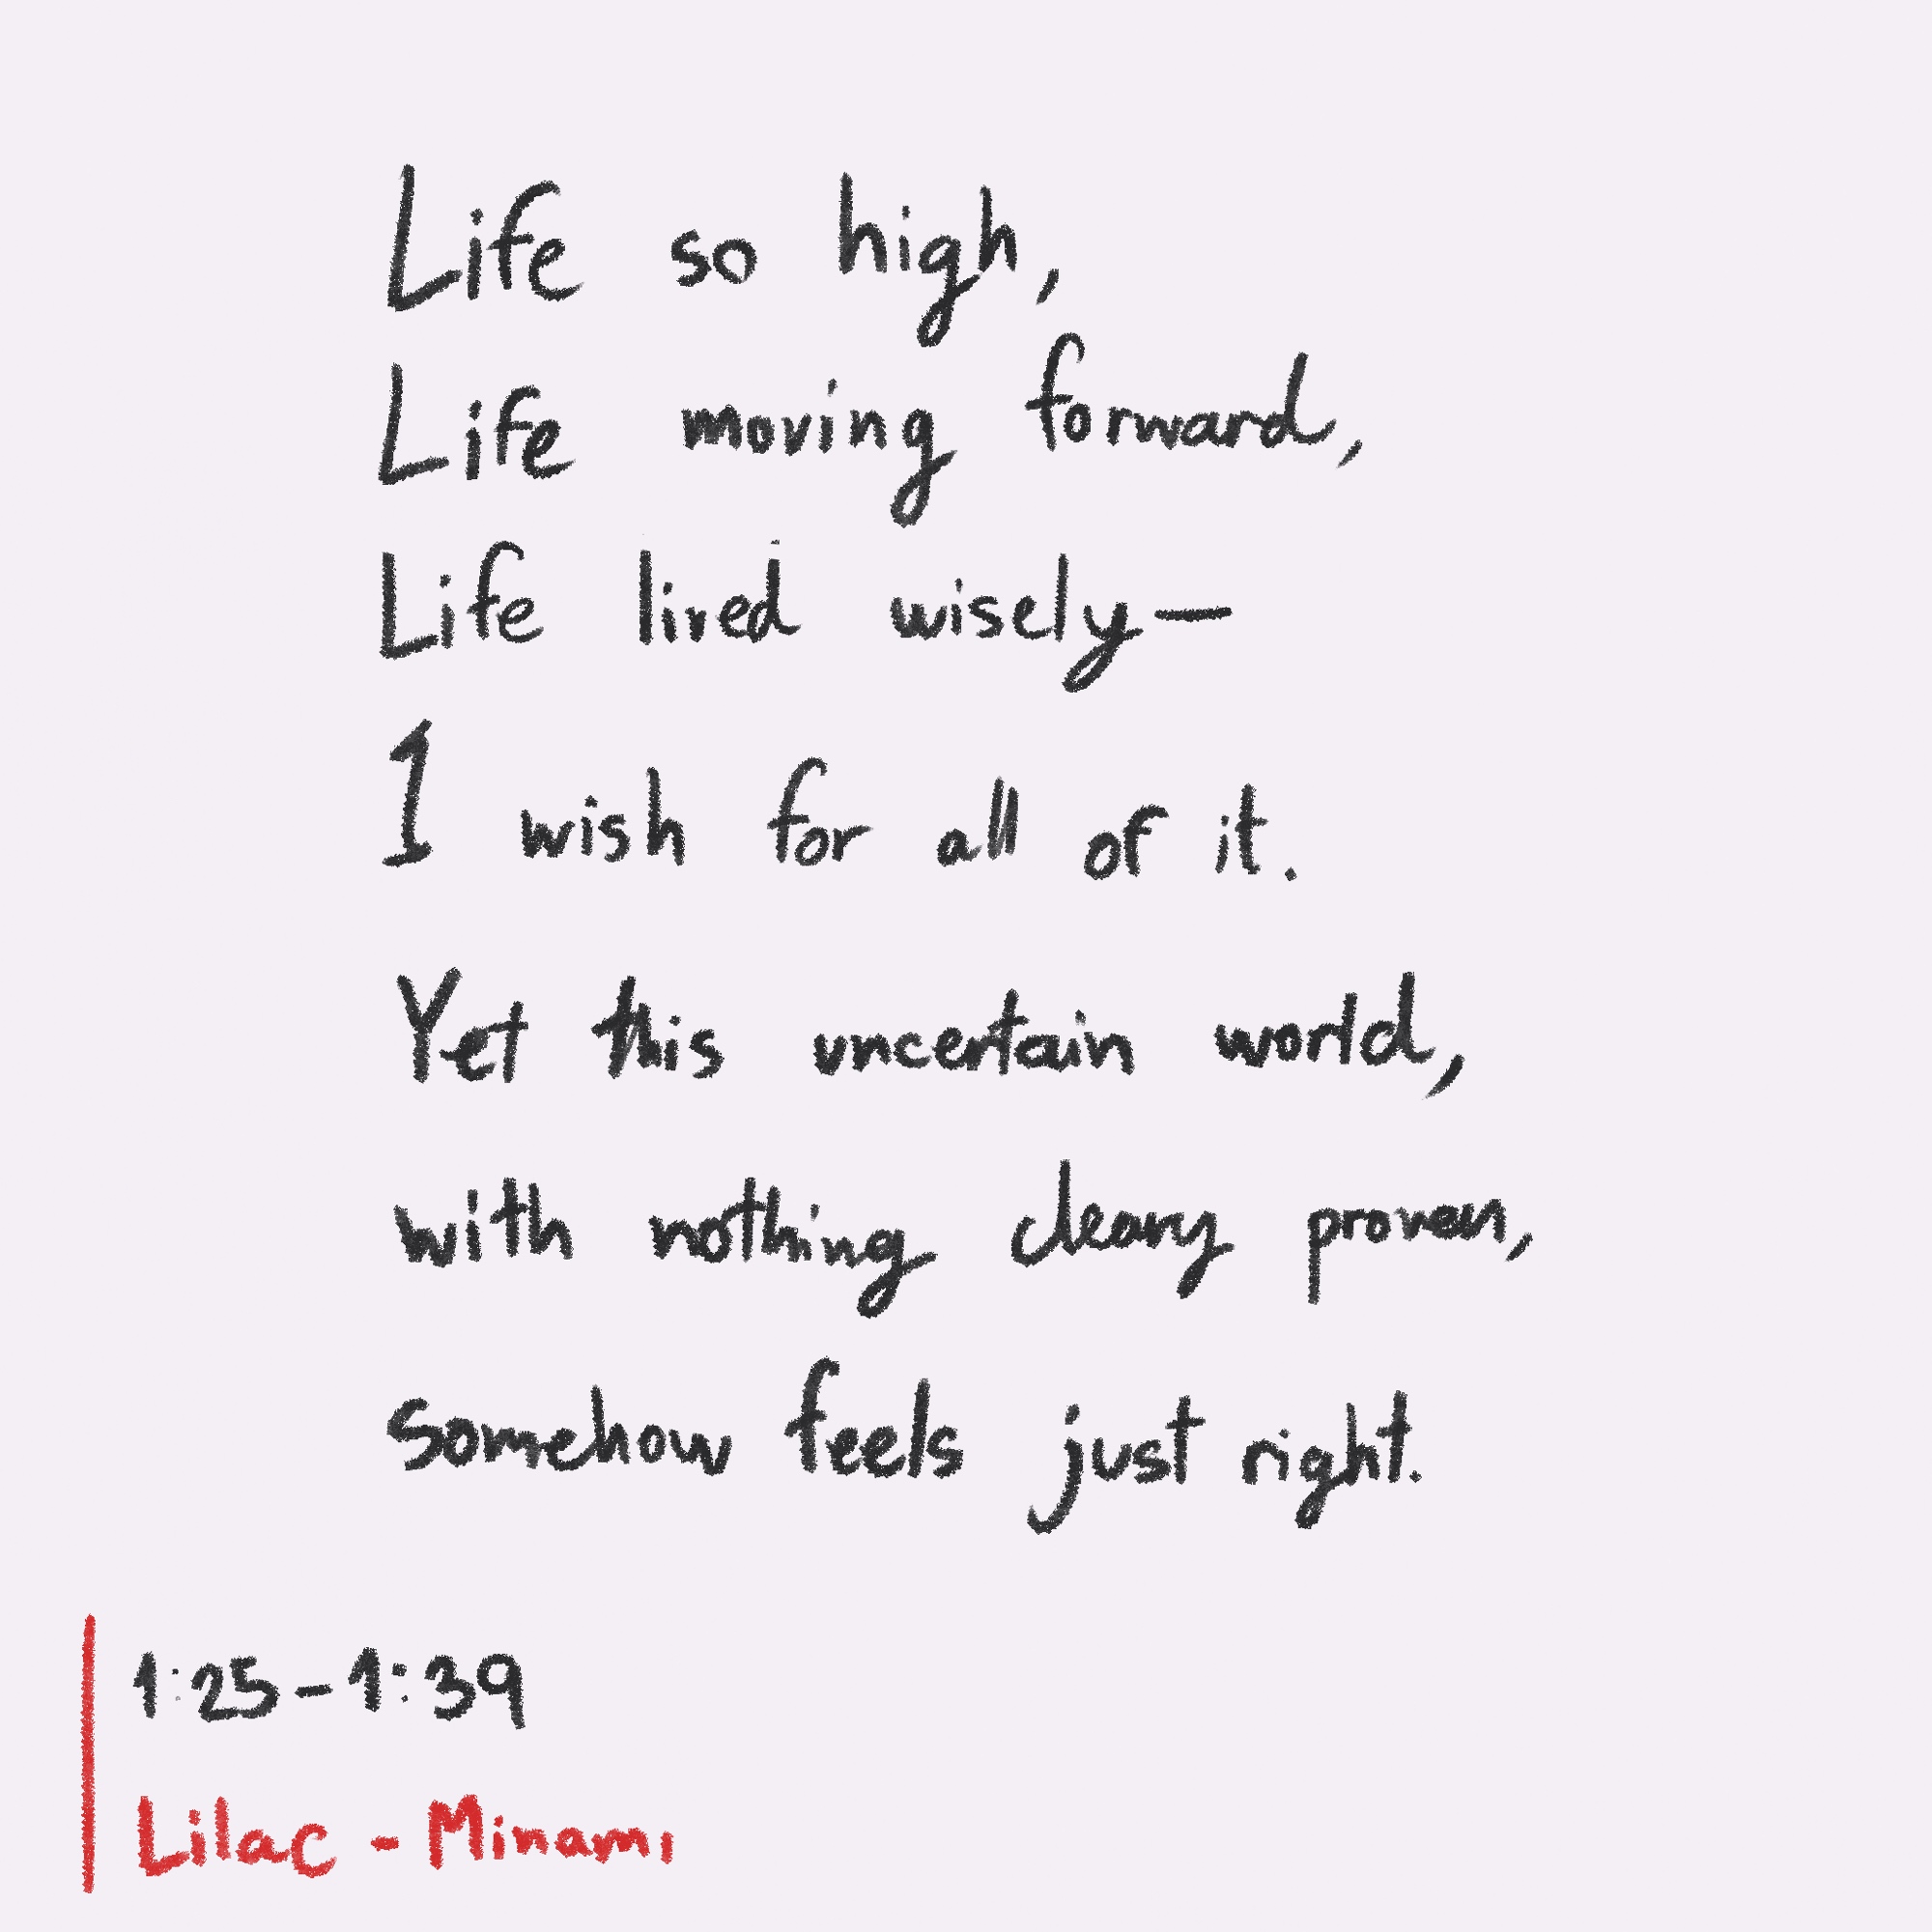 Life so high,
Life moving forward,
Life lived wisely—
I wish for all of it.
Yet this uncertain world,
with nothing cleary proven,
somehow feels just right.
1:25-1:39
Lilac - Minami